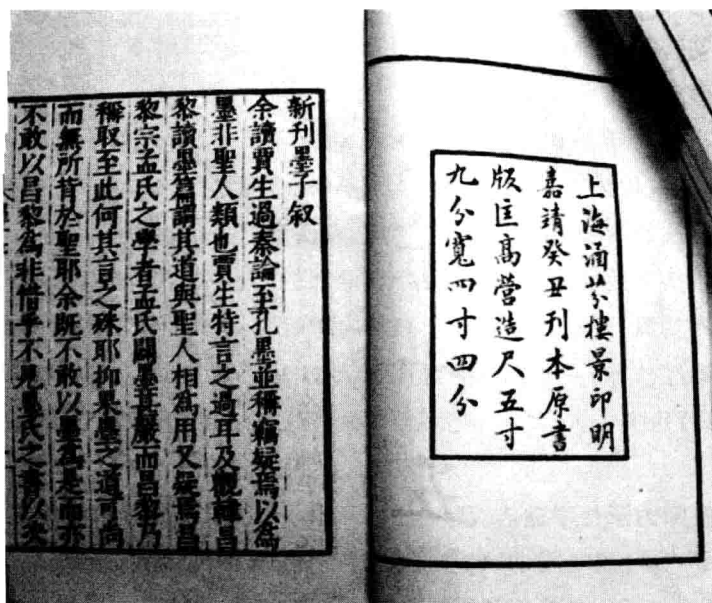 上海涵芬樓景印明
嘉靖癸丑刊本原書
版匡高營造尺五寸
九分寬四寸四分
新刊墨子叙
余讀賈生過秦論至孔墨並稱竊疑焉以為
墨非聖人類也賈生特言之過耳及觀韓昌
黎讀墨篇謂其道與聖人相為用又疑焉昌
黎宗孟氏之學者孟氏闢墨甚嚴而昌黎乃
稱取至此何其言之殊耶抑果墨之道可尚
而無所背於聖耶余既不敢以墨為是而亦
不敢以昌黎為非惜乎不見墨氏之書以決